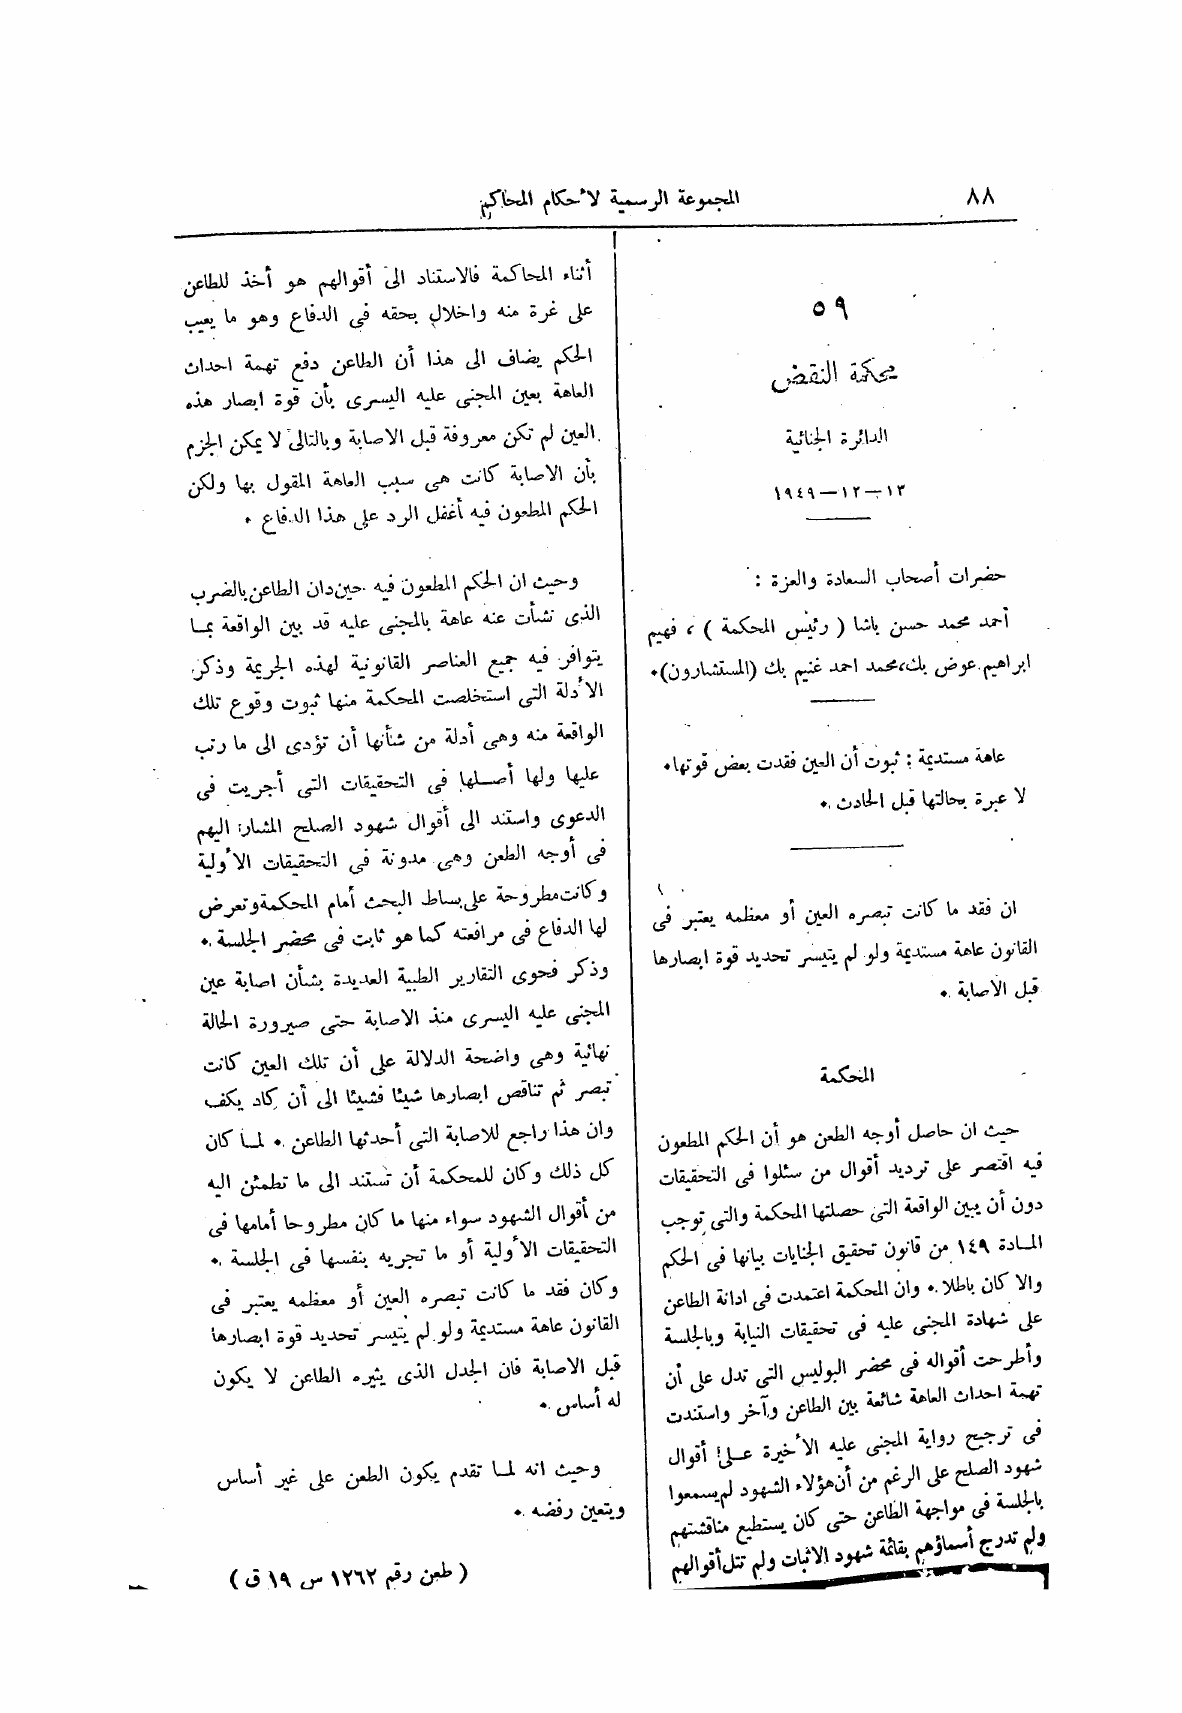 ٨٨
المجموعة الرسمية لأحكام المحاكم
٥٩
محكمة النقض
الدائرة الجنائية
١٣-١٢-١٩٤٩
حضرات أصحاب السعادة والعزة :
أحمد محمد حسن باشا ( رئيس المحكمة ) ، فهيم
ابراهيم عوض بك، محمد احمد غنيم بك (المستشارون)٠
عاهة مستديمة : ثبوت أن العين فقدت بعض قوتها٠
لا عبرة بحالتها قبل الحادث ٠
ان فقد ما كانت تبصره العين أو معظمه يعتبر فى
القانون عاهة مستديمة ولو لم يتيسر تحديد قوة ابصارها
قبل الاصابة ٠
المحكمة
حيث ان حاصل أوجه الطعن هو أن الحكم المطعون
فيه اقتصر على ترديد أقوال من سئلوا فى التحقيقات
دون أن يبين الواقعة التى حصلتها المحكمة والتى توجب
المادة ١٤٩ من قانون تحقيق الجنايات بيانها فى الحكم
والا كان باطلا ٠ وان المحكمة اعتمدت فى ادانة الطاعن
على شهادة المجنى عليه فى تحقيقات النيابة وبالجلسة
وأطرحت أقواله فى محضر البوليس التى تدل على أن
تهمة احداث العاهة شائعة بين الطاعن وآخر واستندت
فى ترجيح رواية المجنى عليه الأخيرة على أقوال
شهود الصلح على الرغم من أن هؤلاء الشهود لم يسمعوا
بالجلسة فى مواجهة الطاعن حتى كان يستطيع مناقشتهم
ولم تدرج أسماؤهم بقائمة شهود الاثبات ولم تتل أقوالهم
أثناء المحاكمة فالاستناد الى أقوالهم هو أخذ للطاعن
على غرة منه واخلال بحقه فى الدفاع وهو ما يعيب
الحكم يضاف الى هذا أن الطاعن دفع تهمة احداث
العاهة بعين المجنى عليه اليسرى بأن قوة ابصار هذه
العين لم تكن معروفة قبل الاصابة وبالتالى لا يمكن الجزم
بأن الاصابة كانت هى سبب العاهة المقول بها ولكن
الحكم المطعون فيه أغفل الرد على هذا الدفاع ٠
وحيث ان الحكم المطعون فيه حين دان الطاعن بالضرب
الذى نشأت عنه عاهة بالمجنى عليه قد بين الواقعة بما
يتوافر فيه جميع العناصر القانونية لهذه الجريمة وذكر
الأدلة التى استخلصت المحكمة منها ثبوت وقوع تلك
الواقعة منه وهى أدلة من شأنها أن تؤدى الى ما رتب
عليها ولها أصلها فى التحقيقات التى أجريت فى
الدعوى واستند الى أقوال شهود الصلح المشار اليهم
فى أوجه الطعن وهى مدونة فى التحقيقات الأولية
وكانت مطروحة على بساط البحث أمام المحكمة وتعرض
لها الدفاع فى مرافعته كما هو ثابت فى محضر الجلسة ٠
وذكر فحوى التقارير الطبية العديدة بشأن اصابة عين
المجنى عليه اليسرى منذ الاصابة حتى صيرورة الحالة
نهائية وهى واضحة الدلالة على أن تلك العين كانت
تبصر ثم تناقص ابصارها شيئا فشيئا الى أن كاد يكف
وان هذا راجع للاصابة التى أحدثها الطاعن ٠ لما كان
كل ذلك وكان للمحكمة أن تستند الى ما تطمئن اليه
من أقوال الشهود سواء منها ما كان مطروحا أمامها فى
التحقيقات الأولية أو ما تجريه بنفسها فى الجلسة ٠
وكان فقد ما كانت تبصره العين أو معظمه يعتبر فى
القانون عاهة مستديمة ولو لم يتيسر تحديد قوة ابصارها
قبل الاصابة فان الجدل الذى يثيره الطاعن لا يكون
له أساس ٠
وحيث انه لما تقدم يكون الطعن على غير أساس
ويتعين رفضه ٠
( طعن رقم ١٢٦٢ س ١٩ ق )